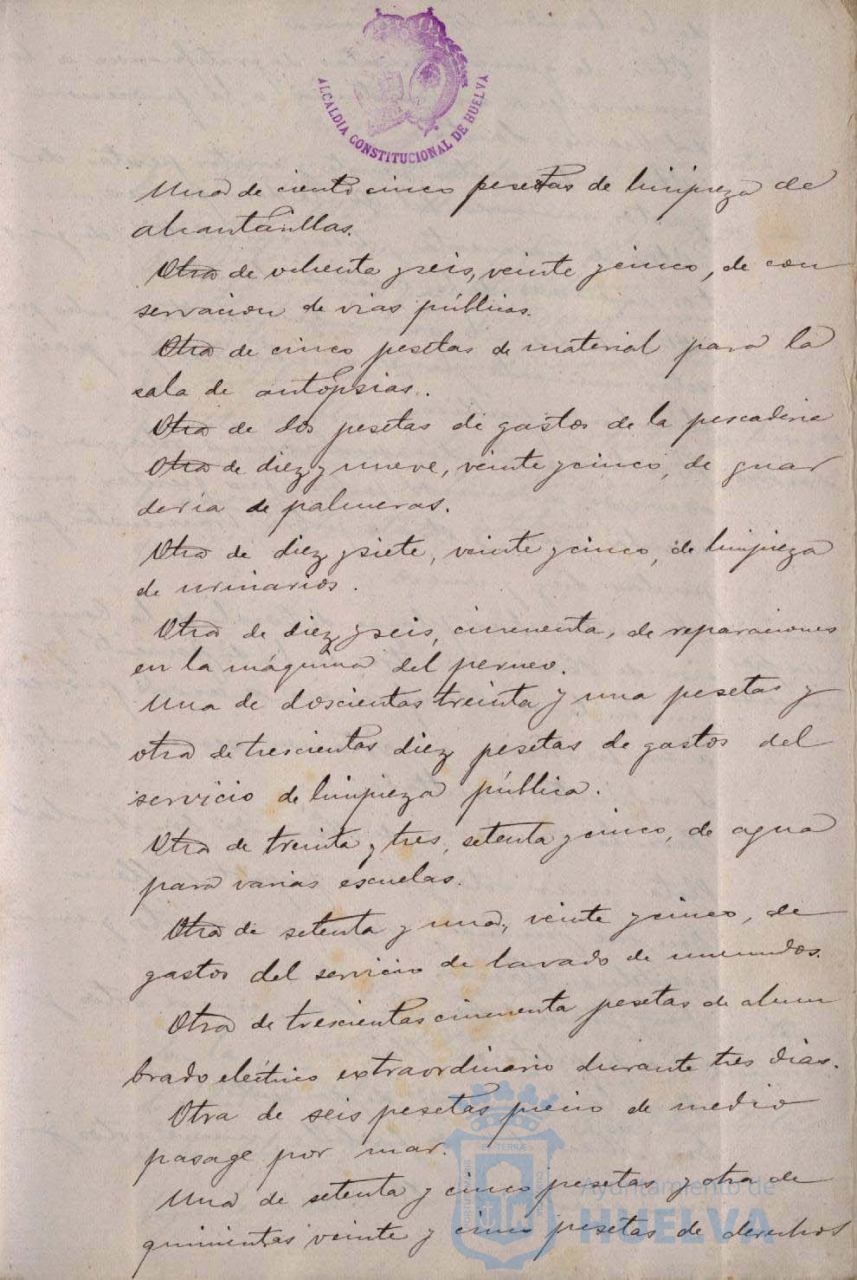 ALCALDIA CONSTITUCIONAL DE HUELVA
Una de ciento cinco pesetas de limpieza de
alcantarillas.
Otra de ochenta y seis, veinte y cinco, de con
servacion de vias públicas.
Otra de cinco pesetas de material para la
sala de autopsias.
Otra de dos pesetas de gastos de la pescaderia
Otra de diez y nueve, veinte y cinco, de guar
deria de palmeras.
Otra de diez y siete, veinte y cinco, de limpieza
de urinarios.
Otra de diez y seis, cincuenta, de reparaciones
en la máquina del perneo.
Una de doscientas treinta y una pesetas y
otra de trescientas diez pesetas de gastos del
servicio de limpieza pública.
Otra de treinta y tres, setenta y cinco, de agua
para varias escuelas.
Otra de setenta y una, veinte y cinco, de
gastos del servicio de lavado de inmundos.
Otra de trescientas cincuenta pesetas de alum
brado eléctrico extraordinario durante tres dias.
Otra de seis pesetas precio de medio
pasage por mar.
Una de setenta y cinco pesetas y otra de
quinientas veinte y cinco pesetas de derechos
Ayuntamiento de
HUELVA